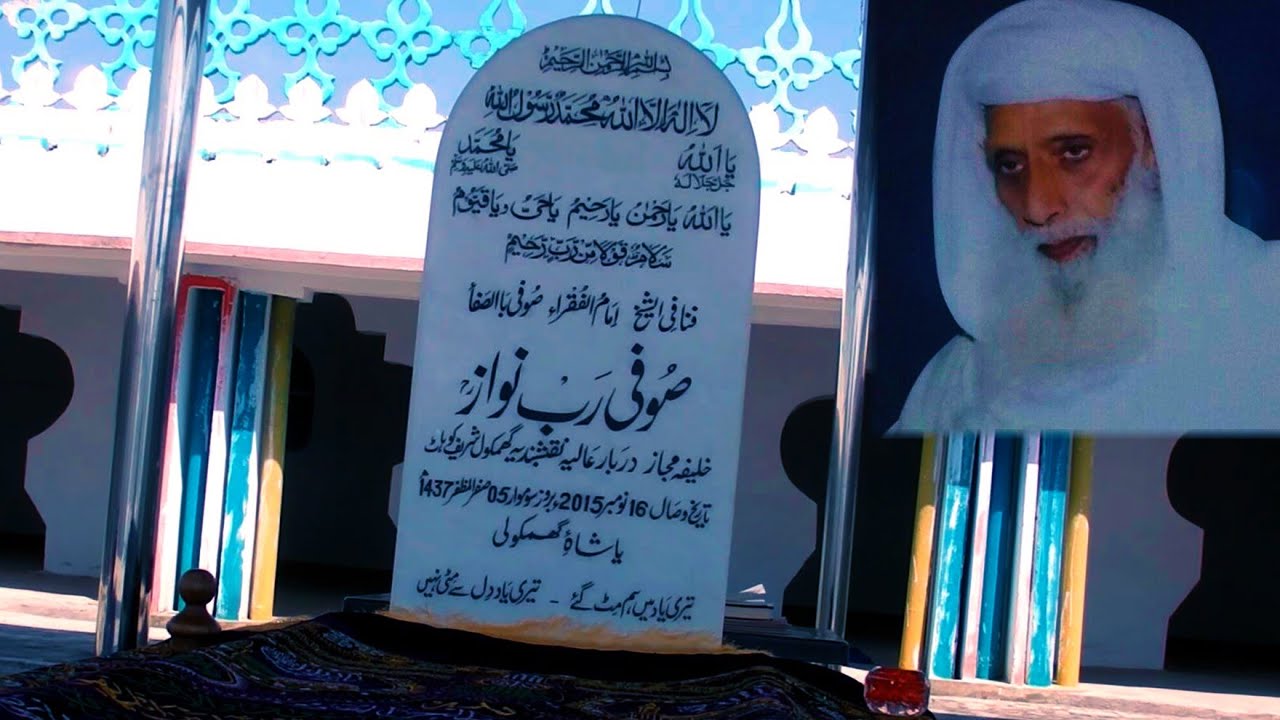 بِسْمِ اللهِ الرَّحْمٰنِ الرَّحِيْمِ
لَا اِلٰهَ اِلَّا اللهُ مُحَمَّدٌ رَّسُوْلُ اللهِ
یَا اَللهُ یَا مُحَمَّد
جَلَّ جَلَالُہٗ صلی اللہ علیہ وسلم
یَا اَللهُ یَا رَحْمٰنُ یَا رَحِیْمُ یَا حَیُّ و یَا قَیُّوْمُ
سَلَامٌ قَوْلًا مِّنْ رَّبٍّ رَّحِیْمٍ
فنا فی الشیخ اِمَامُ الْفُقَرَاء صُوفی باالصفأ
صُوفی رَبْ نواز رح
خلیفہ مجاز دربار عالیہ نقشبندیہ گھمکول شریف کوہاٹ
تاریخ وصال 16 نومبر 2015ء بروز سوموار 05 صفر المظفر 1437ھ
یا شاہِ گھمکولی
تیری یاد میں ہم مٹ گئے - تیری یاد دل سے مٹی نہیں